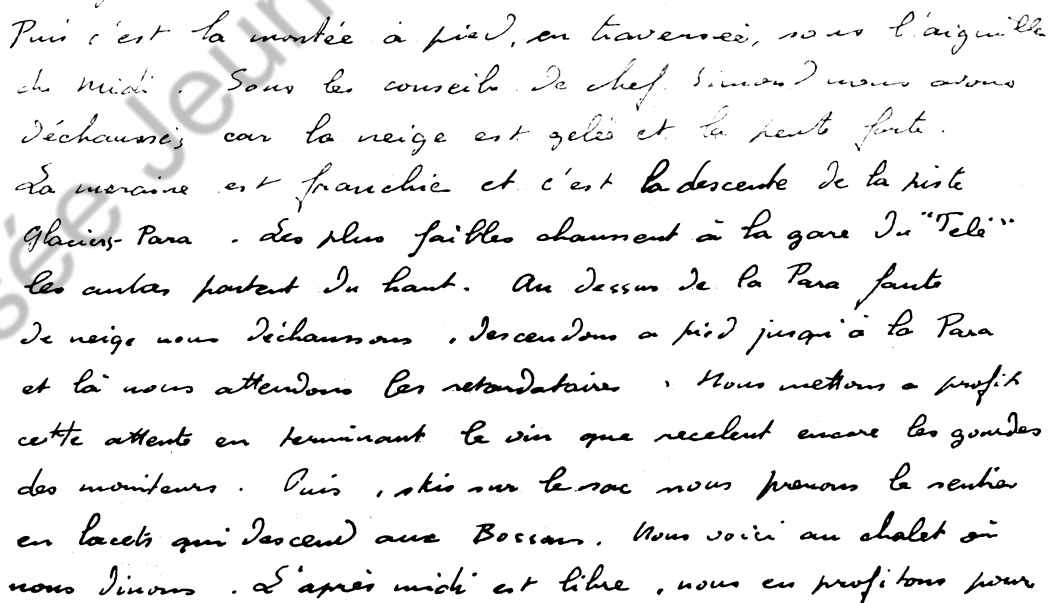 Puis c'est la montée à pied, en traversée, sous l'aiguille
du midi. Sous les conseils de chef Simond nous avons
déchaussés car la neige est gelée et la pente forte.
La moraine est franchie et c'est la descente de la piste
Glaciers-Para. Les plus faibles chaussent à la gare du "Télé"
les autres partent du haut. Au dessus de la Para faute
de neige nous déchaussons, descendons a pied jusqu'à la Para
et là nous attendons les retardataires. Nous mettons a profit
cette attente en terminant le vin que recelent encore les gourdes
des moniteurs. Puis, skis sur le sac nous prenons le sentier
en lacets qui descend aux Bossons. Nous voici au chalet où
nous dinons. L'après midi est libre, nous en profitons pour